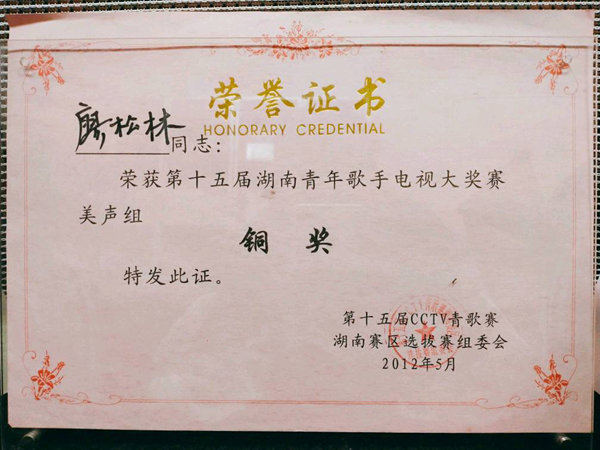 荣誉证书
HONORARY CREDENTIAL
廖松林同志：
荣获第十五届湖南青年歌手电视大奖赛
美声组
铜奖
特发此证。
第十五届CCTV青歌赛
湖南赛区选拔赛组委会
2012年5月